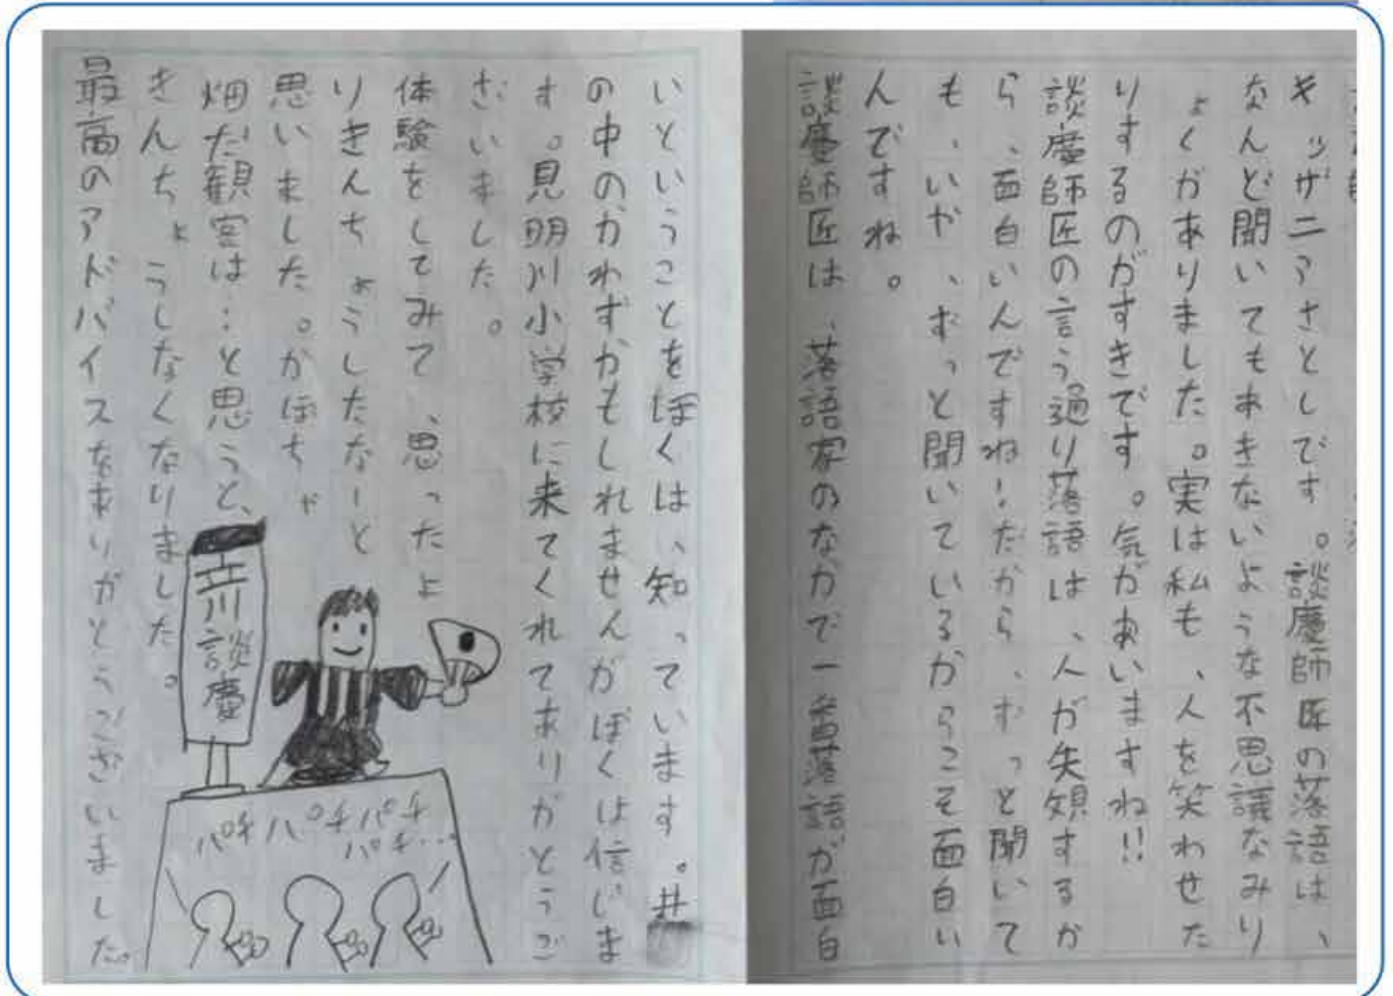 キッザニアさとしです。談慶師匠の落語は、
なんど聞いてもあきないような不思議なみり
ょくがありました。実は私も、人を笑わせた
りするのがすきです。気があいますね!!
談慶師匠の言う通り落語は、人が失敗するか
ら、面白いんですね!だから、ずっと聞いて
も、いや、ずっと聞いているからこそ面白い
んですね。
談慶師匠は、落語家のなかで一番落語が面白
いということをぼくは、知っています。井
の中のかわずかもしれませんがぼくは信じま
す。見明川小学校に来てくれてありがとうご
ざいました。
体験をしてみて、思ったよ
りきんちょうしたなーと
思いました。かぼちゃ
畑だ観客は…と思うと、
きんちょうしなくなりました。
最高のアドバイスをありがとうございました。
立川談慶
パチパチパチ
パチ…